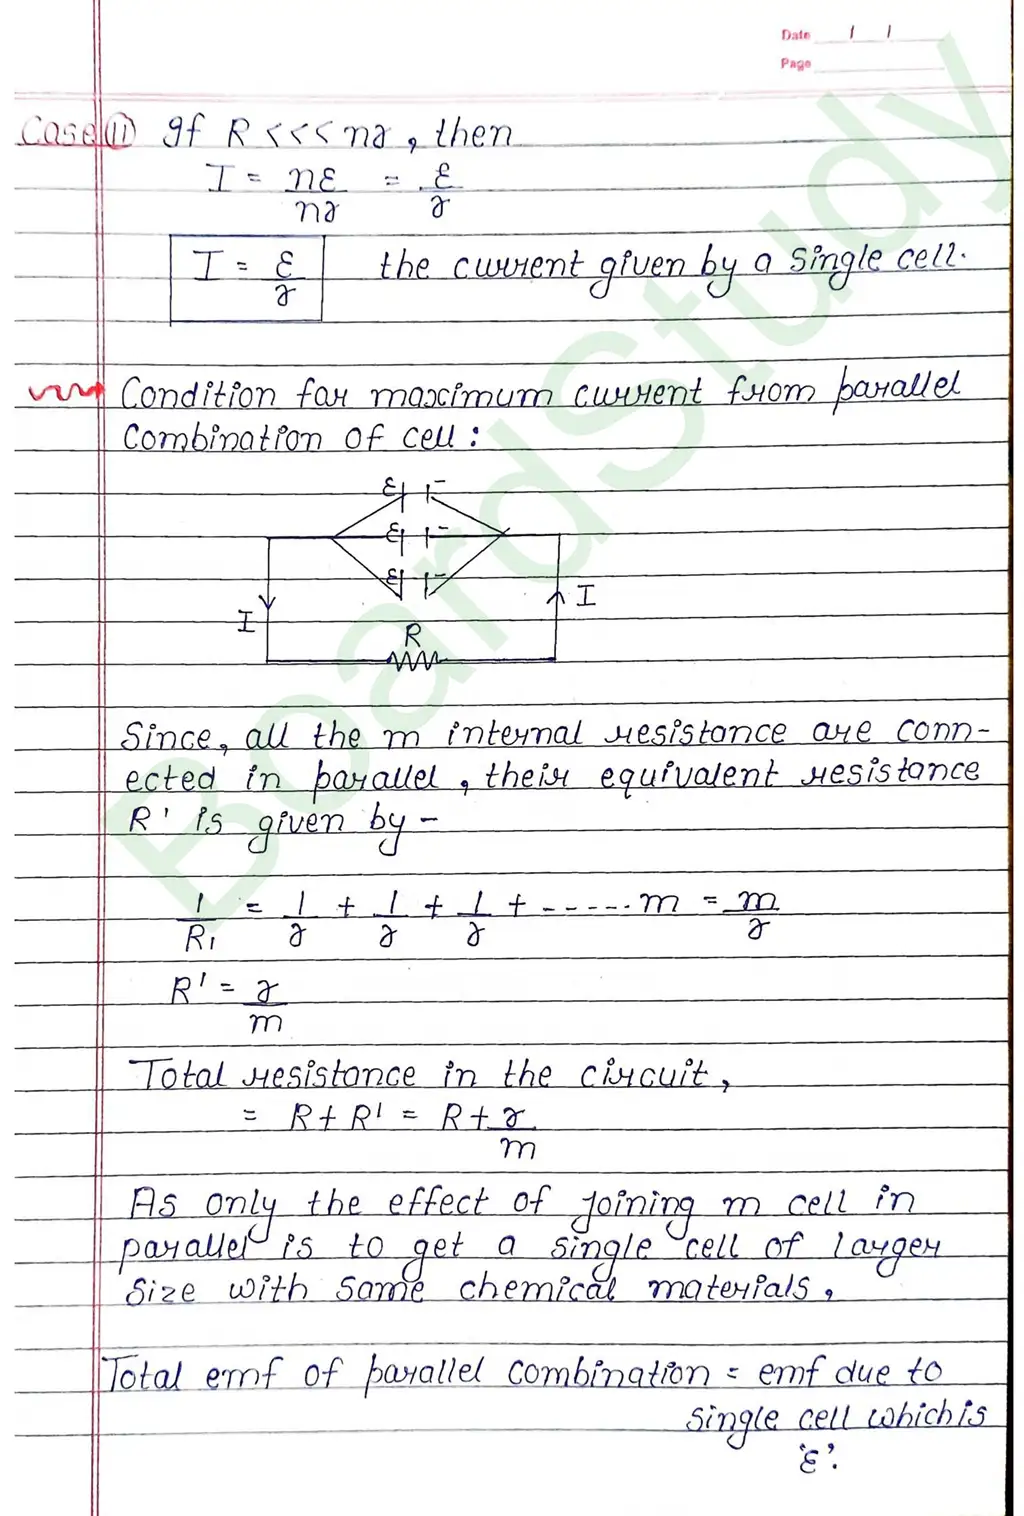 Date / /
Page
Case (ii) If R <<< nr, then
I = nε/nr = ε/r
I = ε/r the current given by a single cell.
Condition for maximum current from parallel
Combination of cell :
ε -
ε -
ε -
I
I
R
Since, all the m internal resistance are conn-
ected in parallel, their equivalent resistance
R' is given by -
1/R₁ = 1/r + 1/r + 1/r + ------ m = m/r
R' = r/m
Total resistance in the circuit,
= R + R' = R + r/m
As only the effect of joining m cell in
parallel is to get a single cell of larger
size with same chemical materials,
Total emf of parallel combination = emf due to
single cell which is
'ε'.
BoardStudy